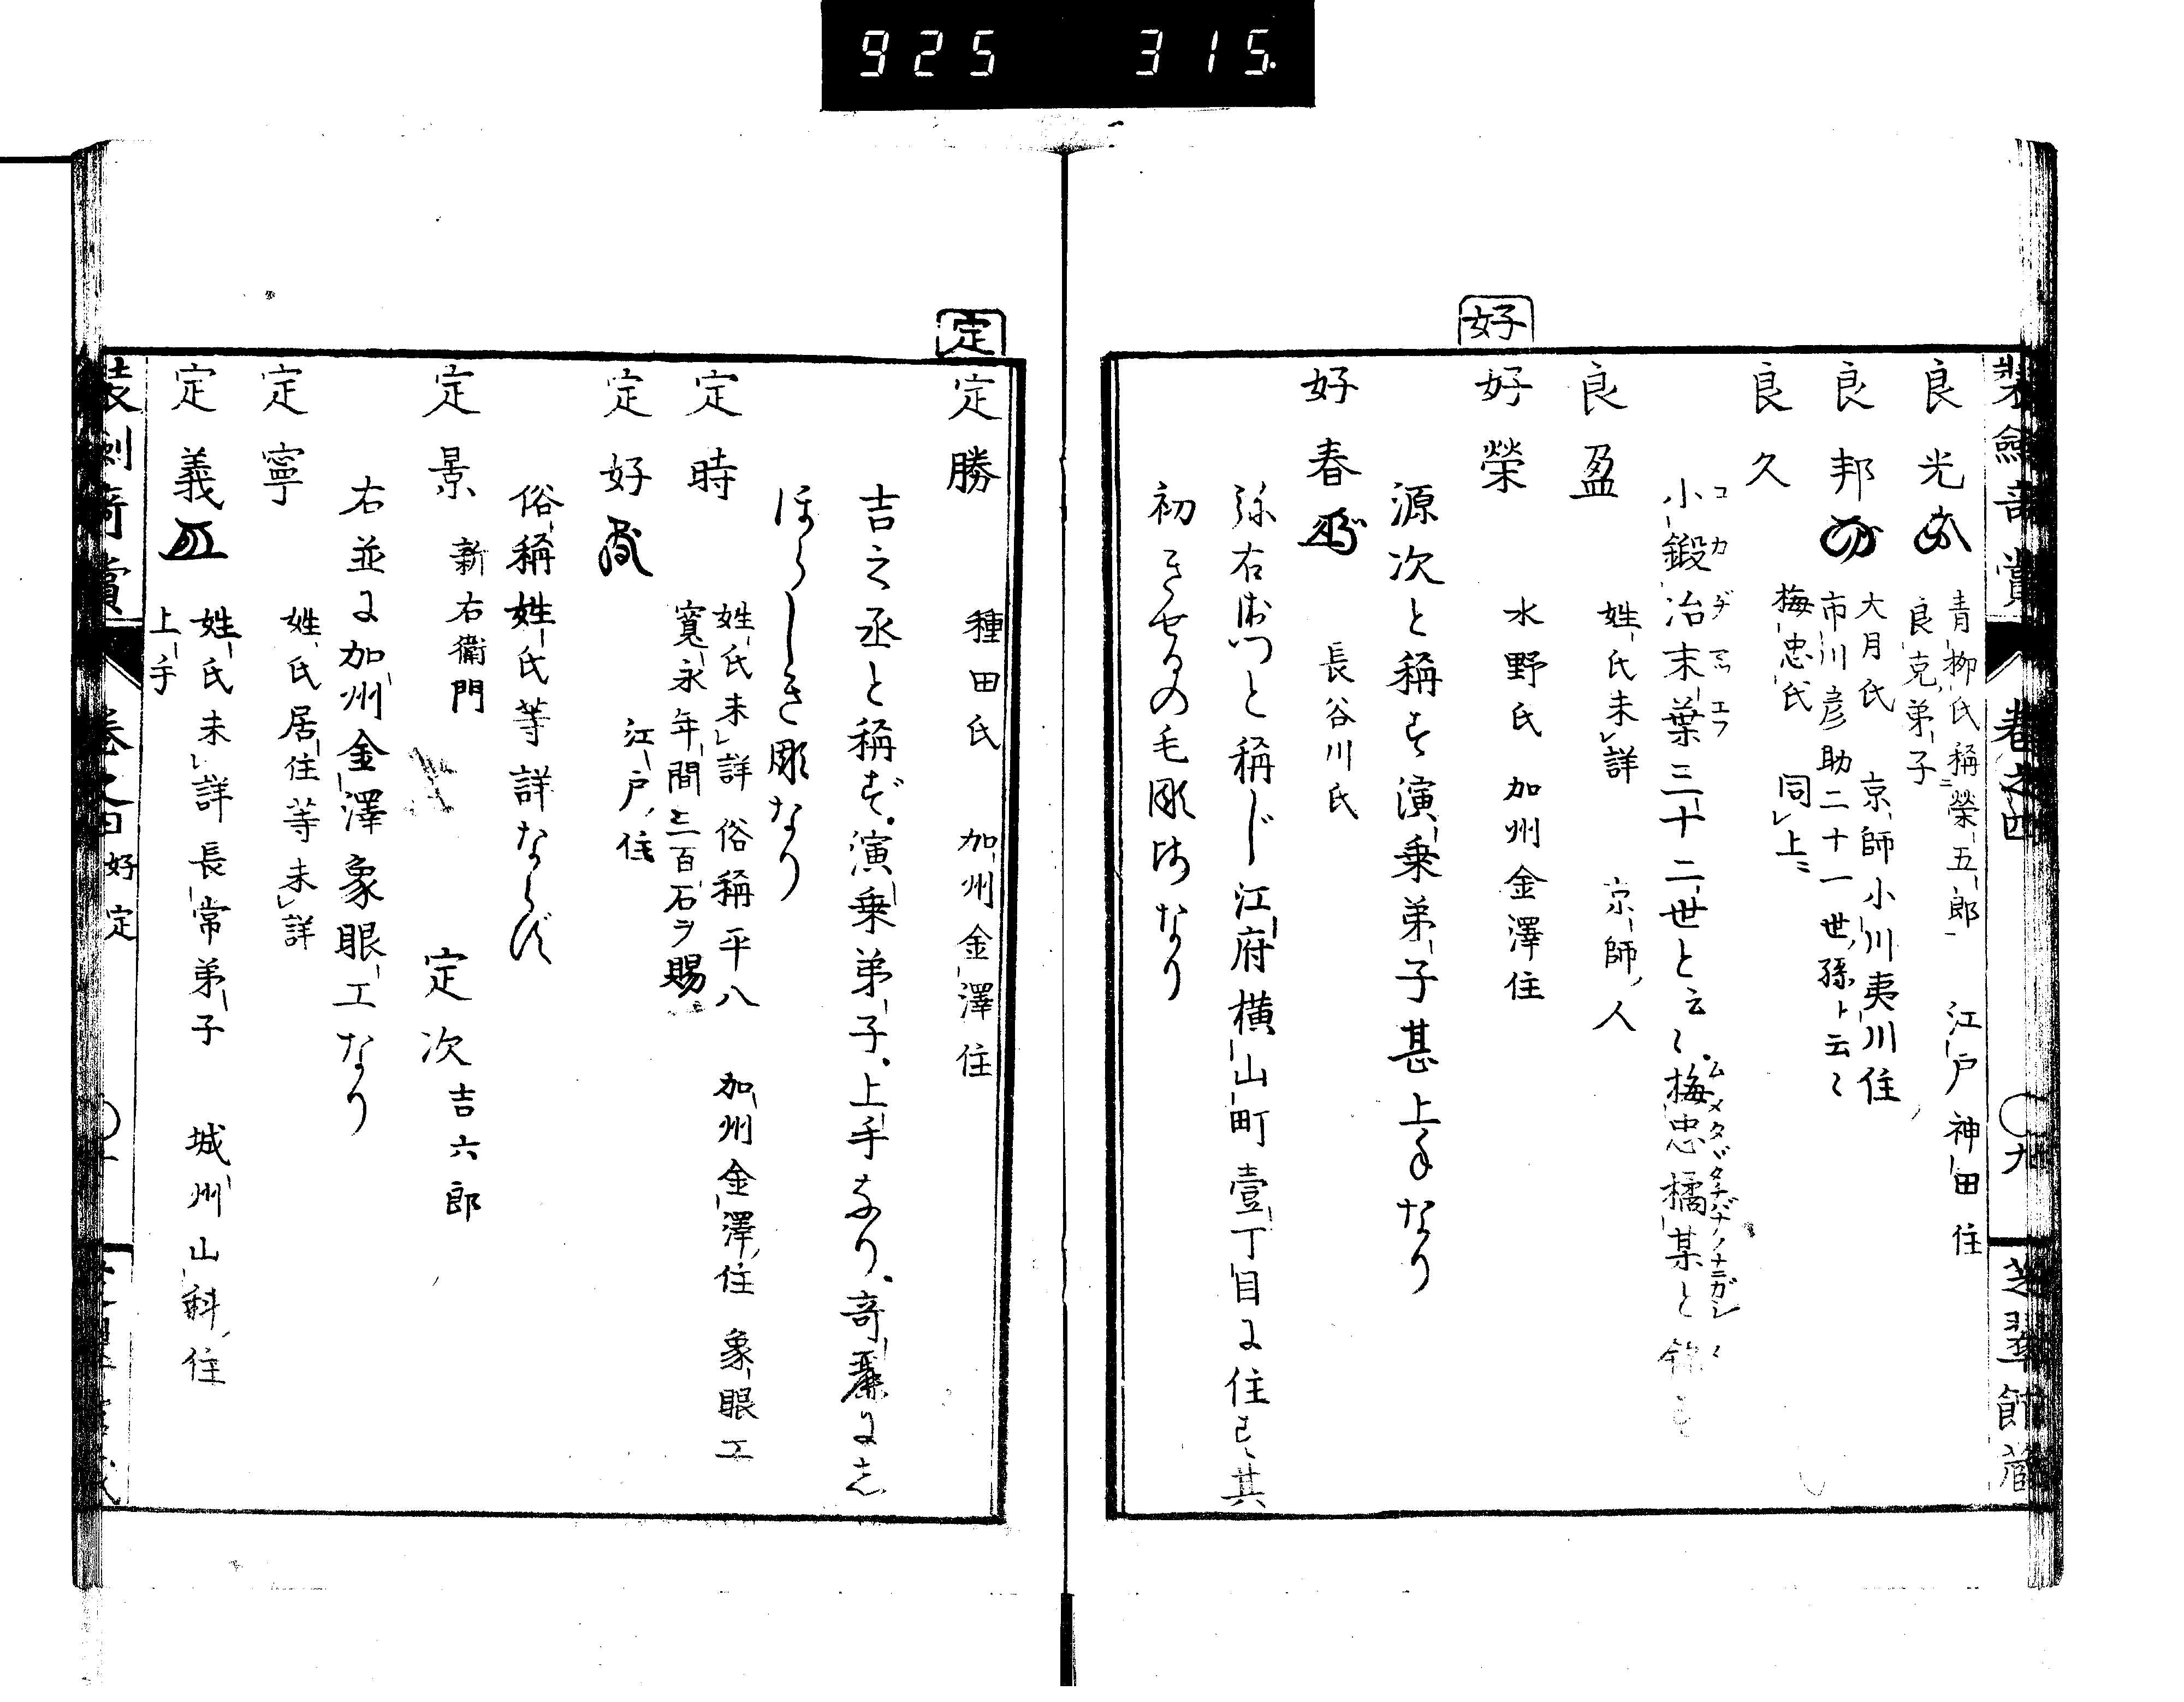 925 315.
装劔竒賞 巻之四 ○九 芝翠館藏
良光 青柳氏稱榮五郎 江戸神田住
良克弟子
良邦 大月氏 京師小川夷川住
市川彦助二十一世ノ孫ト云々
良久 梅忠氏 同レ上ニ
小鍛冶末葉三十二世と云々梅忠橘某と
コカヂマツエフ ムメタヾタチバナノナニガシ
良盈 姓氏未レ詳 京師ノ人
好
好榮 水野氏 加州金澤住
源次と稱す演乗弟子甚上手なり
好春 長谷川氏
弥右衛門と稱じ江府横山町壹丁目に住す其
初きせるの毛彫師なり
定
定勝 種田氏 加州金澤住
吉之丞と稱ず演乗弟子上手なり竒麗にし
ほらしき彫なり
定時 姓氏未レ詳俗稱平八 加州金澤ノ住 象眼工
寛永年間三百石ヲ賜
定好 江戸ノ住
俗稱姓氏等詳ならず
定景 新右衛門 定次 吉六郎
右並に加州金澤象眼工なり
定寧 姓氏居住等未レ詳
定義 姓氏未レ詳長常弟子 城州山科ノ住
上手
装劔竒賞 好 定